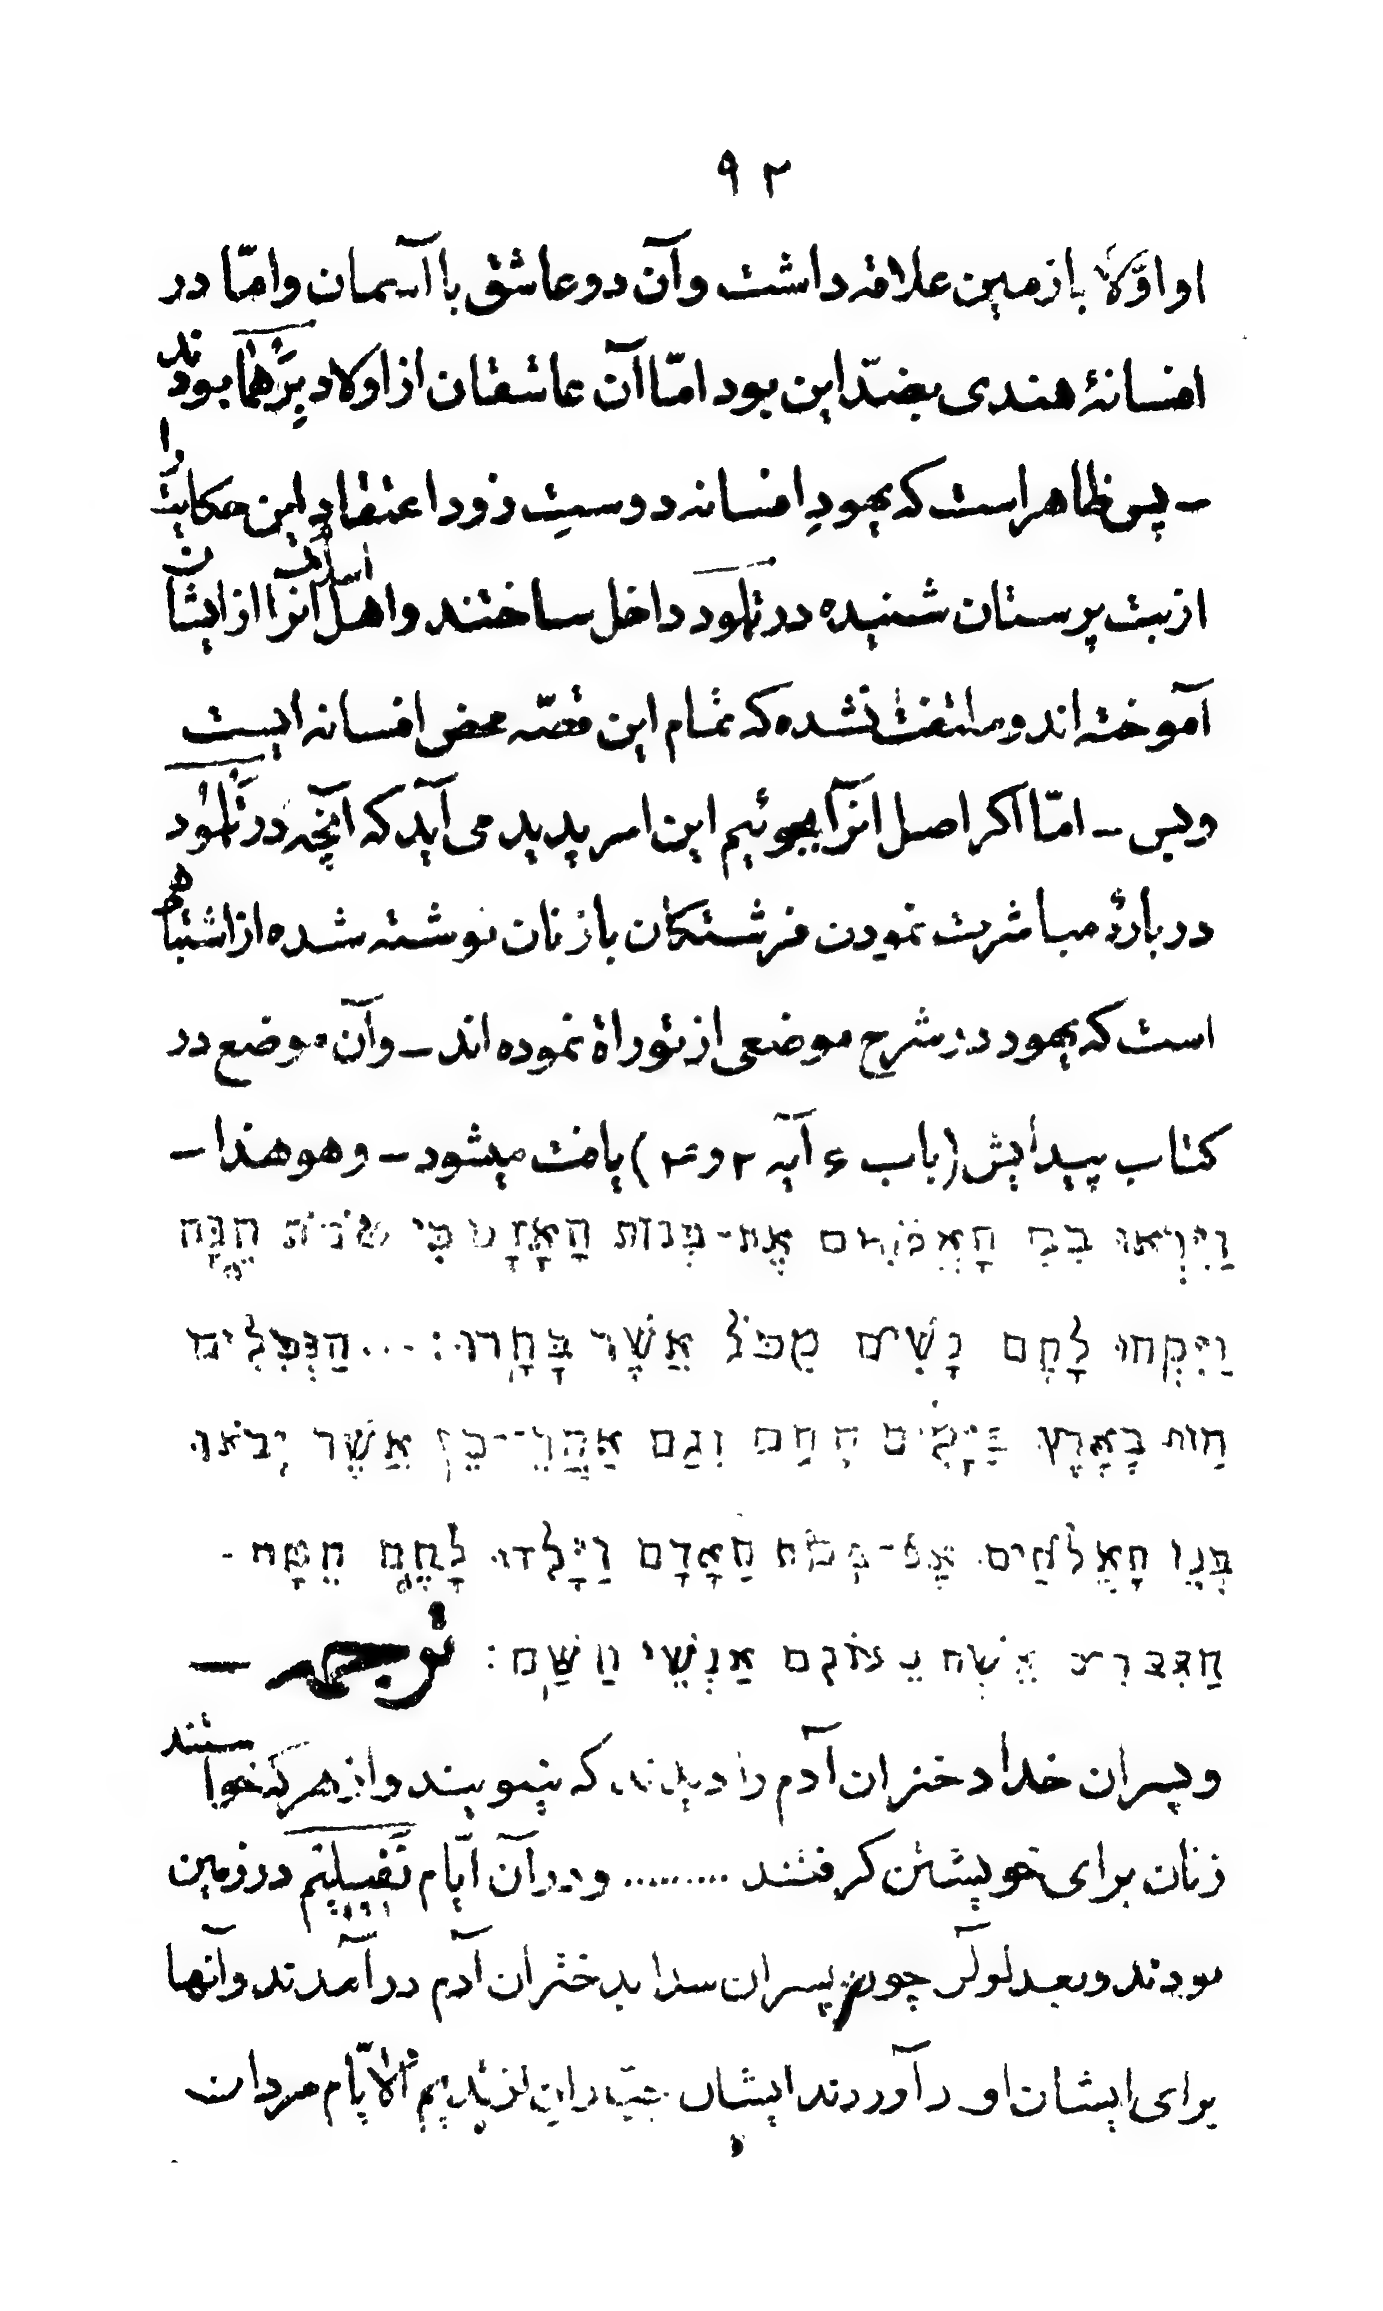 ۹۲
او اوّلاً با زمین علاقه داشت و آن دو عاشق با آسمان و امّا در
افسانهٔ هندی بضدّ این بود امّا آن عاشقان از اولاد بِرَهْما بودند
– پس ظاهر است که یهودِ افسانه دوستِ زود اعتقاد این حکایت را
از بت پرستان شنیده در تلمود داخل ساختند و اهل اسلام آنرا از ایشان
آموخته اند و ملتفت نشده که تمام این قصّه محض افسانه ایست
و بس – امّا اگر اصل آنرا بجوئیم این امر پدید می آید که آنچه در تَلمود
در بارهٔ مباشرت نمودن فرشتگان با زنان نوشته شده از اشتباهی
است که یهود در شرح موضعی از توراة نموده اند – و آن موضع در
کتاب پیدایش (باب ۶ آیه ۲ و ۴) یافت میشود – و هو هذا –
וַיִּרְאוּ בני הָאֱלֹהִים אֶת-בְּנוֹת הָאָדָם כִּי טֹבֹת הֵנָּה
וַיִּקְחוּ לָהֶם נָשִׁים מִכֹּל אֲשֶׁר בָּחָרוּ: ... הַנְּפִלִים
הָיוּ בָאָרֶץ בַּיָּמִים הָהֵם וְגַם אַחֲרֵי-כֵן אֲשֶׁר יָבֹאוּ
בְּנֵי הָאֱלֹהִים אֶל-בְּנוֹת הָאָדָם וְיָלְדוּ לָהֶם הֵמָּה -
הַגִּבֹּרִים אֲשֶׁר מֵעוֹלָם אַנְשֵׁי הַשֵּׁם: ترجمه –
و پسران خدا دختران آدم را دیدند که نیکویند و از هر که خواستند
زنان برای خویشتن گرفتند ......... و در آن ایّام نَفیلیم در زمین
بودند و بعد از آن چون پسران خدا بدختران آدم در آمدند و آنها
برای ایشان اولاد آوردند ایشان جبّاران از قدیم الایّام مردان